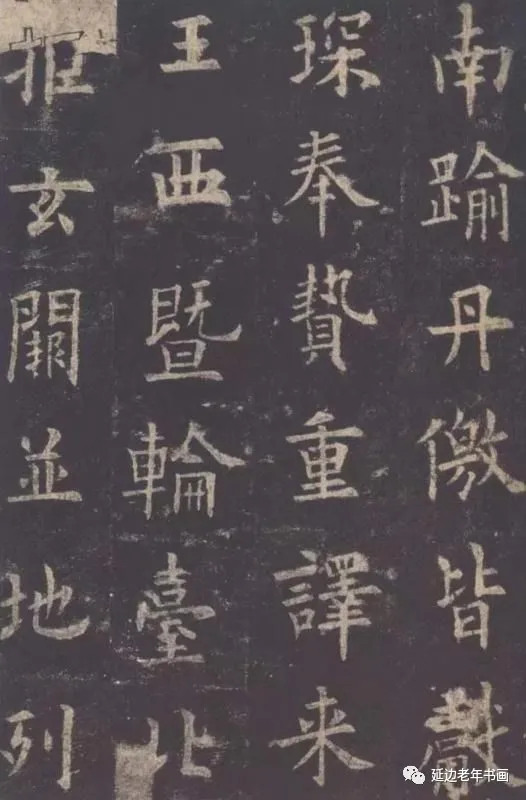 南踰丹儌皆獻
琛奉贄重譯来
王西暨輪臺北
拒玄闕並地列
延边老年书画